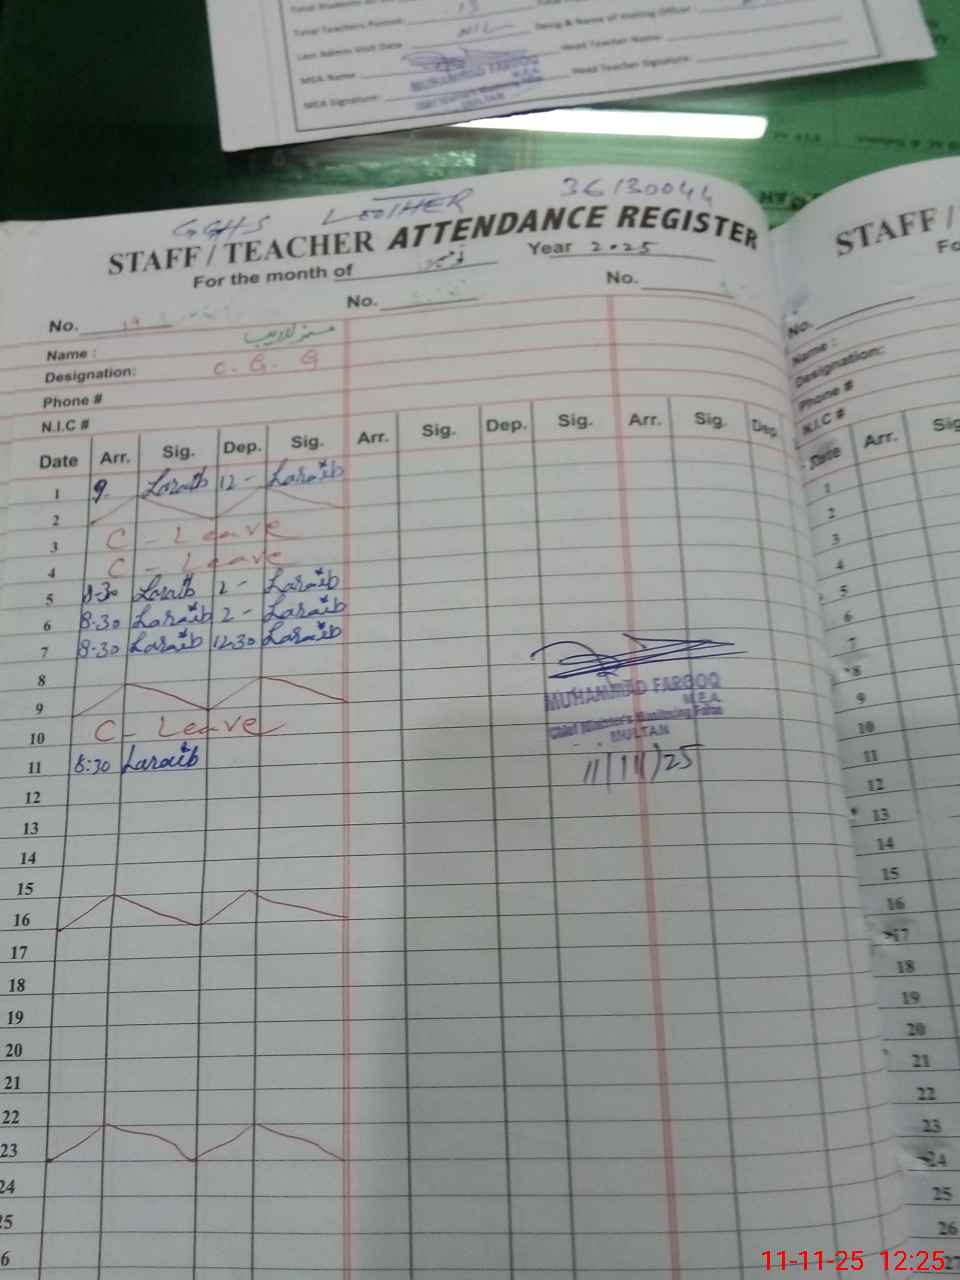 Total Teachers Posted: 13
Last Admin Visit Date NIL Desig & Name of Visiting Officer
MEA Name Head Teacher Name:
MUHAMMAD FAROOQ
M.E.A.
MEA Signature: Head Teacher Signature:
MULTAN
GGHS LEOTHER 36130044
STAFF / TEACHER ATTENDANCE REGISTER
For the month of نومبر Year 2025
No. 19 No. No.
Name :
Designation: C. G. G
Phone #
N.I.C #
Date Arr. Sig. Dep. Sig. Arr. Sig. Dep. Sig. Arr. Sig. Dep.
1 9 Laraib 12 - Laraib
2
3 C - Leave
4 C - Leave
5 8-30 Laraib 2 - Laraib
6 8-30 Laraib 2 - Laraib
7 8-30 Laraib 12-30 Laraib
8
9
10 C - Leave
11 8:30 Laraib
12
13
14
15
16
17
18
19
20
21
22
23
24
25
26
MUHAMMAD FAROOQ
M.E.A.
Chief Minister's Monitoring Force
MULTAN
11/11/25
STAFF /
No.
Name :
Designation:
Phone #
N.I.C #
Date Arr. Sig
1
2
3
4
5
6
7
8
9
10
11
12
13
14
15
16
17
18
19
20
21
22
23
24
25
26
27
11-11-25 12:25